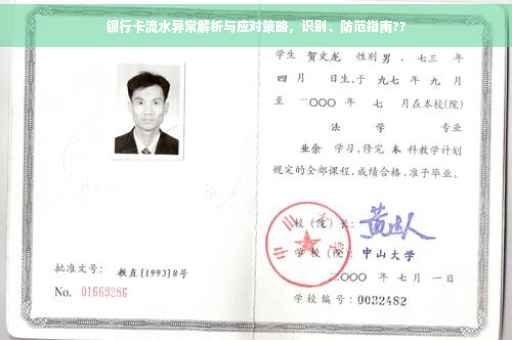 银行卡流水异常解析与应对策略，识别、防范指南??
学生 贺文龙 性别 男 、七三 年
四 月 日生,于 九七 年 九 月
至 二〇〇〇 年 七 月在本校(院)
法 学 专业
业余 学习,修完 本 科教学计划
规定的全部课程,成绩合格,准予毕业。
校(院)长:
学校(院): 中山大学
二〇〇〇 年 七 月 一 日
批准文号: 教直[1993]8号
No. 01663286
学校编号: 0032482